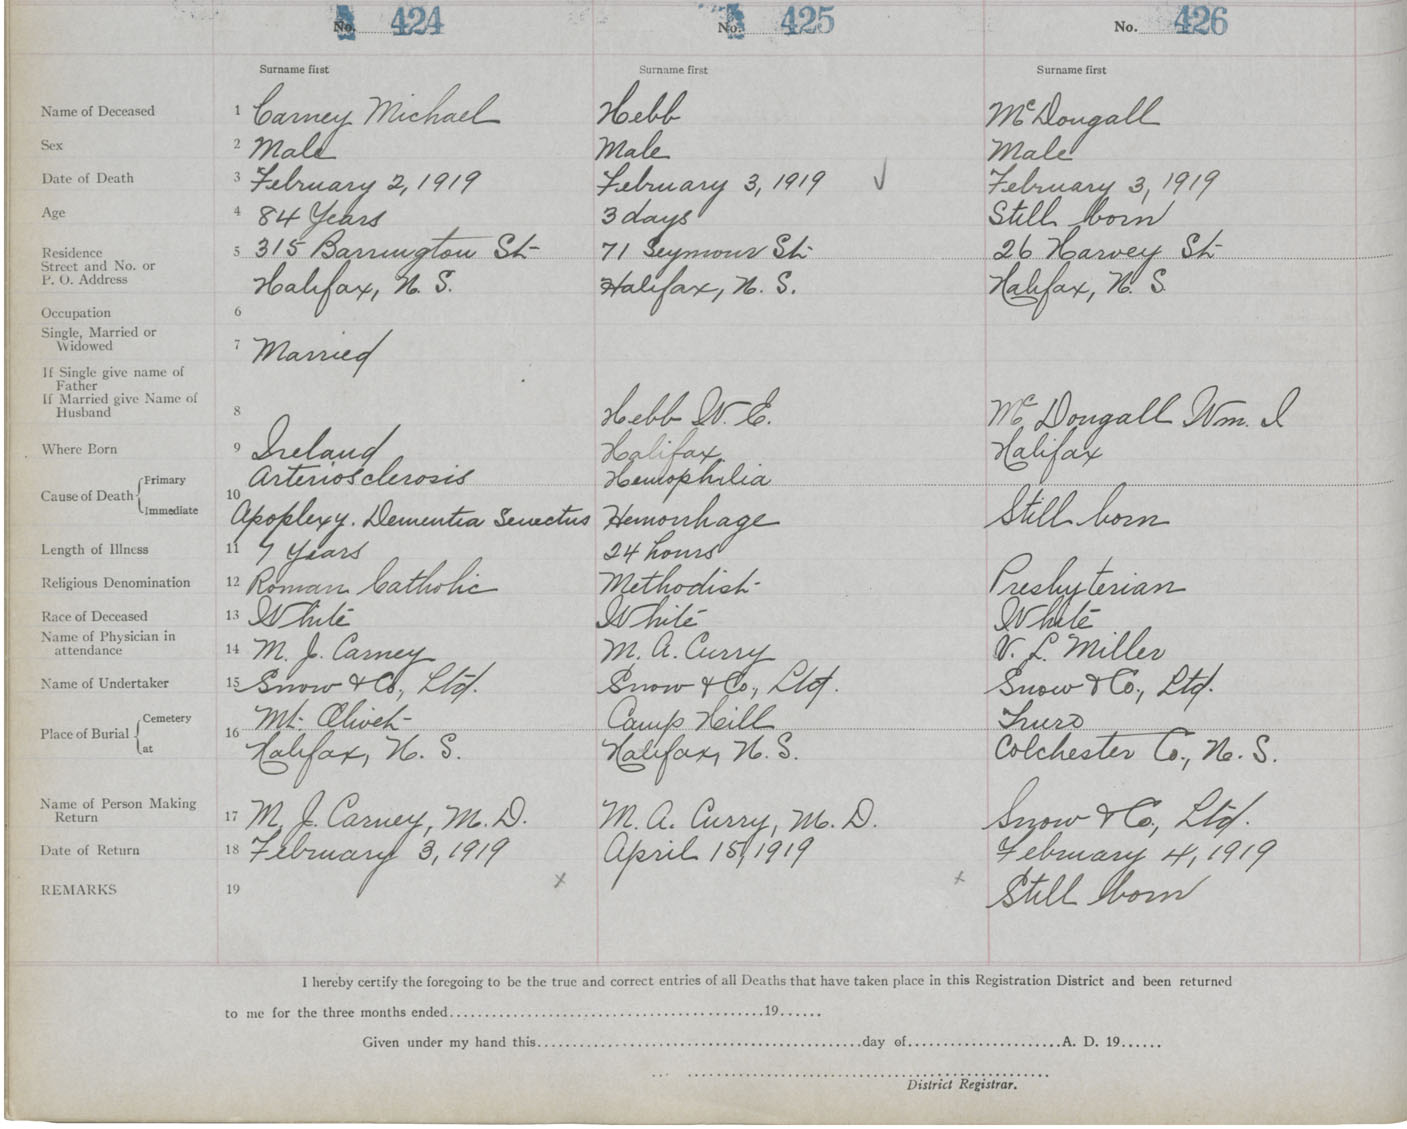 No. 424 No. 425 No. 426
Surname first Surname first Surname first
Name of Deceased 1 Carney Michael Hebb McDougall
Sex 2 Male Male Male
Date of Death 3 February 2, 1919 February 3, 1919 ✓ February 3, 1919
Age 4 84 Years 3 days Still born
Residence 5 315 Barrington St 71 Seymour St 26 Harvey St
Street and No. or
P. O. Address Halifax, N. S. Halifax, N. S. Halifax, N. S
Occupation 6
Single, Married or
Widowed 7 Married
If Single give name of
Father
If Married give Name of
Husband 8 Hebb W. E. McDougall Wm. I
Where Born 9 Ireland Halifax Halifax
Primary Arteriosclerosis Hemophilia
Cause of Death 10
Immediate Apoplexy. Dementia Senectus Hemorrhage Still born
Length of Illness 11 7 Years 24 hours
Religious Denomination 12 Roman Catholic Methodist Presbyterian
Race of Deceased 13 White White White
Name of Physician in
attendance 14 M. J. Carney M. A. Curry V. L. Miller
Name of Undertaker 15 Snow & Co., Ltd. Snow & Co., Ltd. Snow & Co., Ltd.
Cemetery Mt. Olivet Camp Hill Truro
Place of Burial 16
at Halifax, N. S. Halifax, N. S. Colchester Co., N. S.
Name of Person Making
Return 17 M. J. Carney, M. D. M. A. Curry, M. D. Snow & Co., Ltd.
Date of Return 18 February 3, 1919 April 15, 1919 February 4, 1919
REMARKS 19 x x Still born
I hereby certify the foregoing to be the true and correct entries of all Deaths that have taken place in this Registration District and been returned
to me for the three months ended........................................19......
Given under my hand this........................................day of......................A. D. 19......
District Registrar.